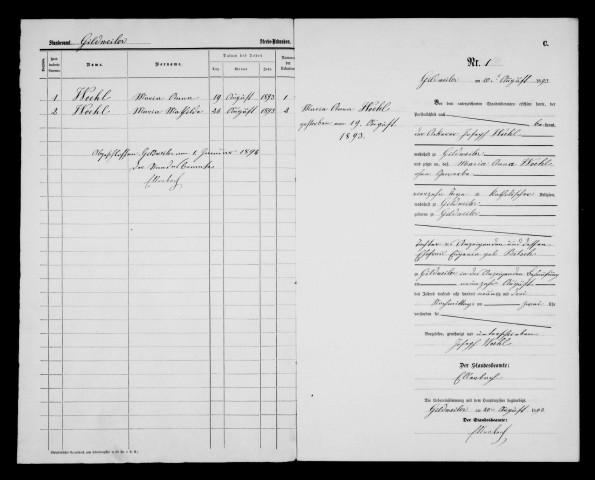 Standesamt Gildweiler
Sterbe-Urkunden.
Name. Vorname. Datum des Todes
Tag. Monat. Jahr.
1 Wöhl Maria Anna 19 August 1893 1
2 Wöhl Maria Mathilde 20 August 1893 2
Abgeschlossen Gildweiler am 1. Januar 1894
Der Standesbeamte
C.
Nr. 1
Gildweiler am 20. August 1893
Maria Anna Wöhl
gestorben am 19. August
1893.
Vor dem unterzeichneten Standesbeamten erschien heute, der
Persönlichkeit nach
be kannt
der Ackerer Joseph Wöhl
wohnhaft zu Gildweiler
und zeigte an, daß Maria Anna Wöhl
ohne Gewerbe
vierzehn Tage alt, katholischer Religion,
wohnhaft zu Gildweiler
geboren zu Gildweiler
Tochter des Anzeigenden und dessen
Ehefrau Eugenia geb.
zu Gildweiler in des Anzeigenden Behausung
am neunzehn August
des Jahres tausend acht hundert neunzig und drei
Nachmittags um zwei Uhr
verstorben sei
Vorgelesen, genehmigt und unterschrieben
Joseph Wöhl
Der Standesbeamte:
Die Uebereinstimmung mit dem Hauptregister beglaubigt.
Gildweiler am 20. August 1893
Der Standesbeamte: